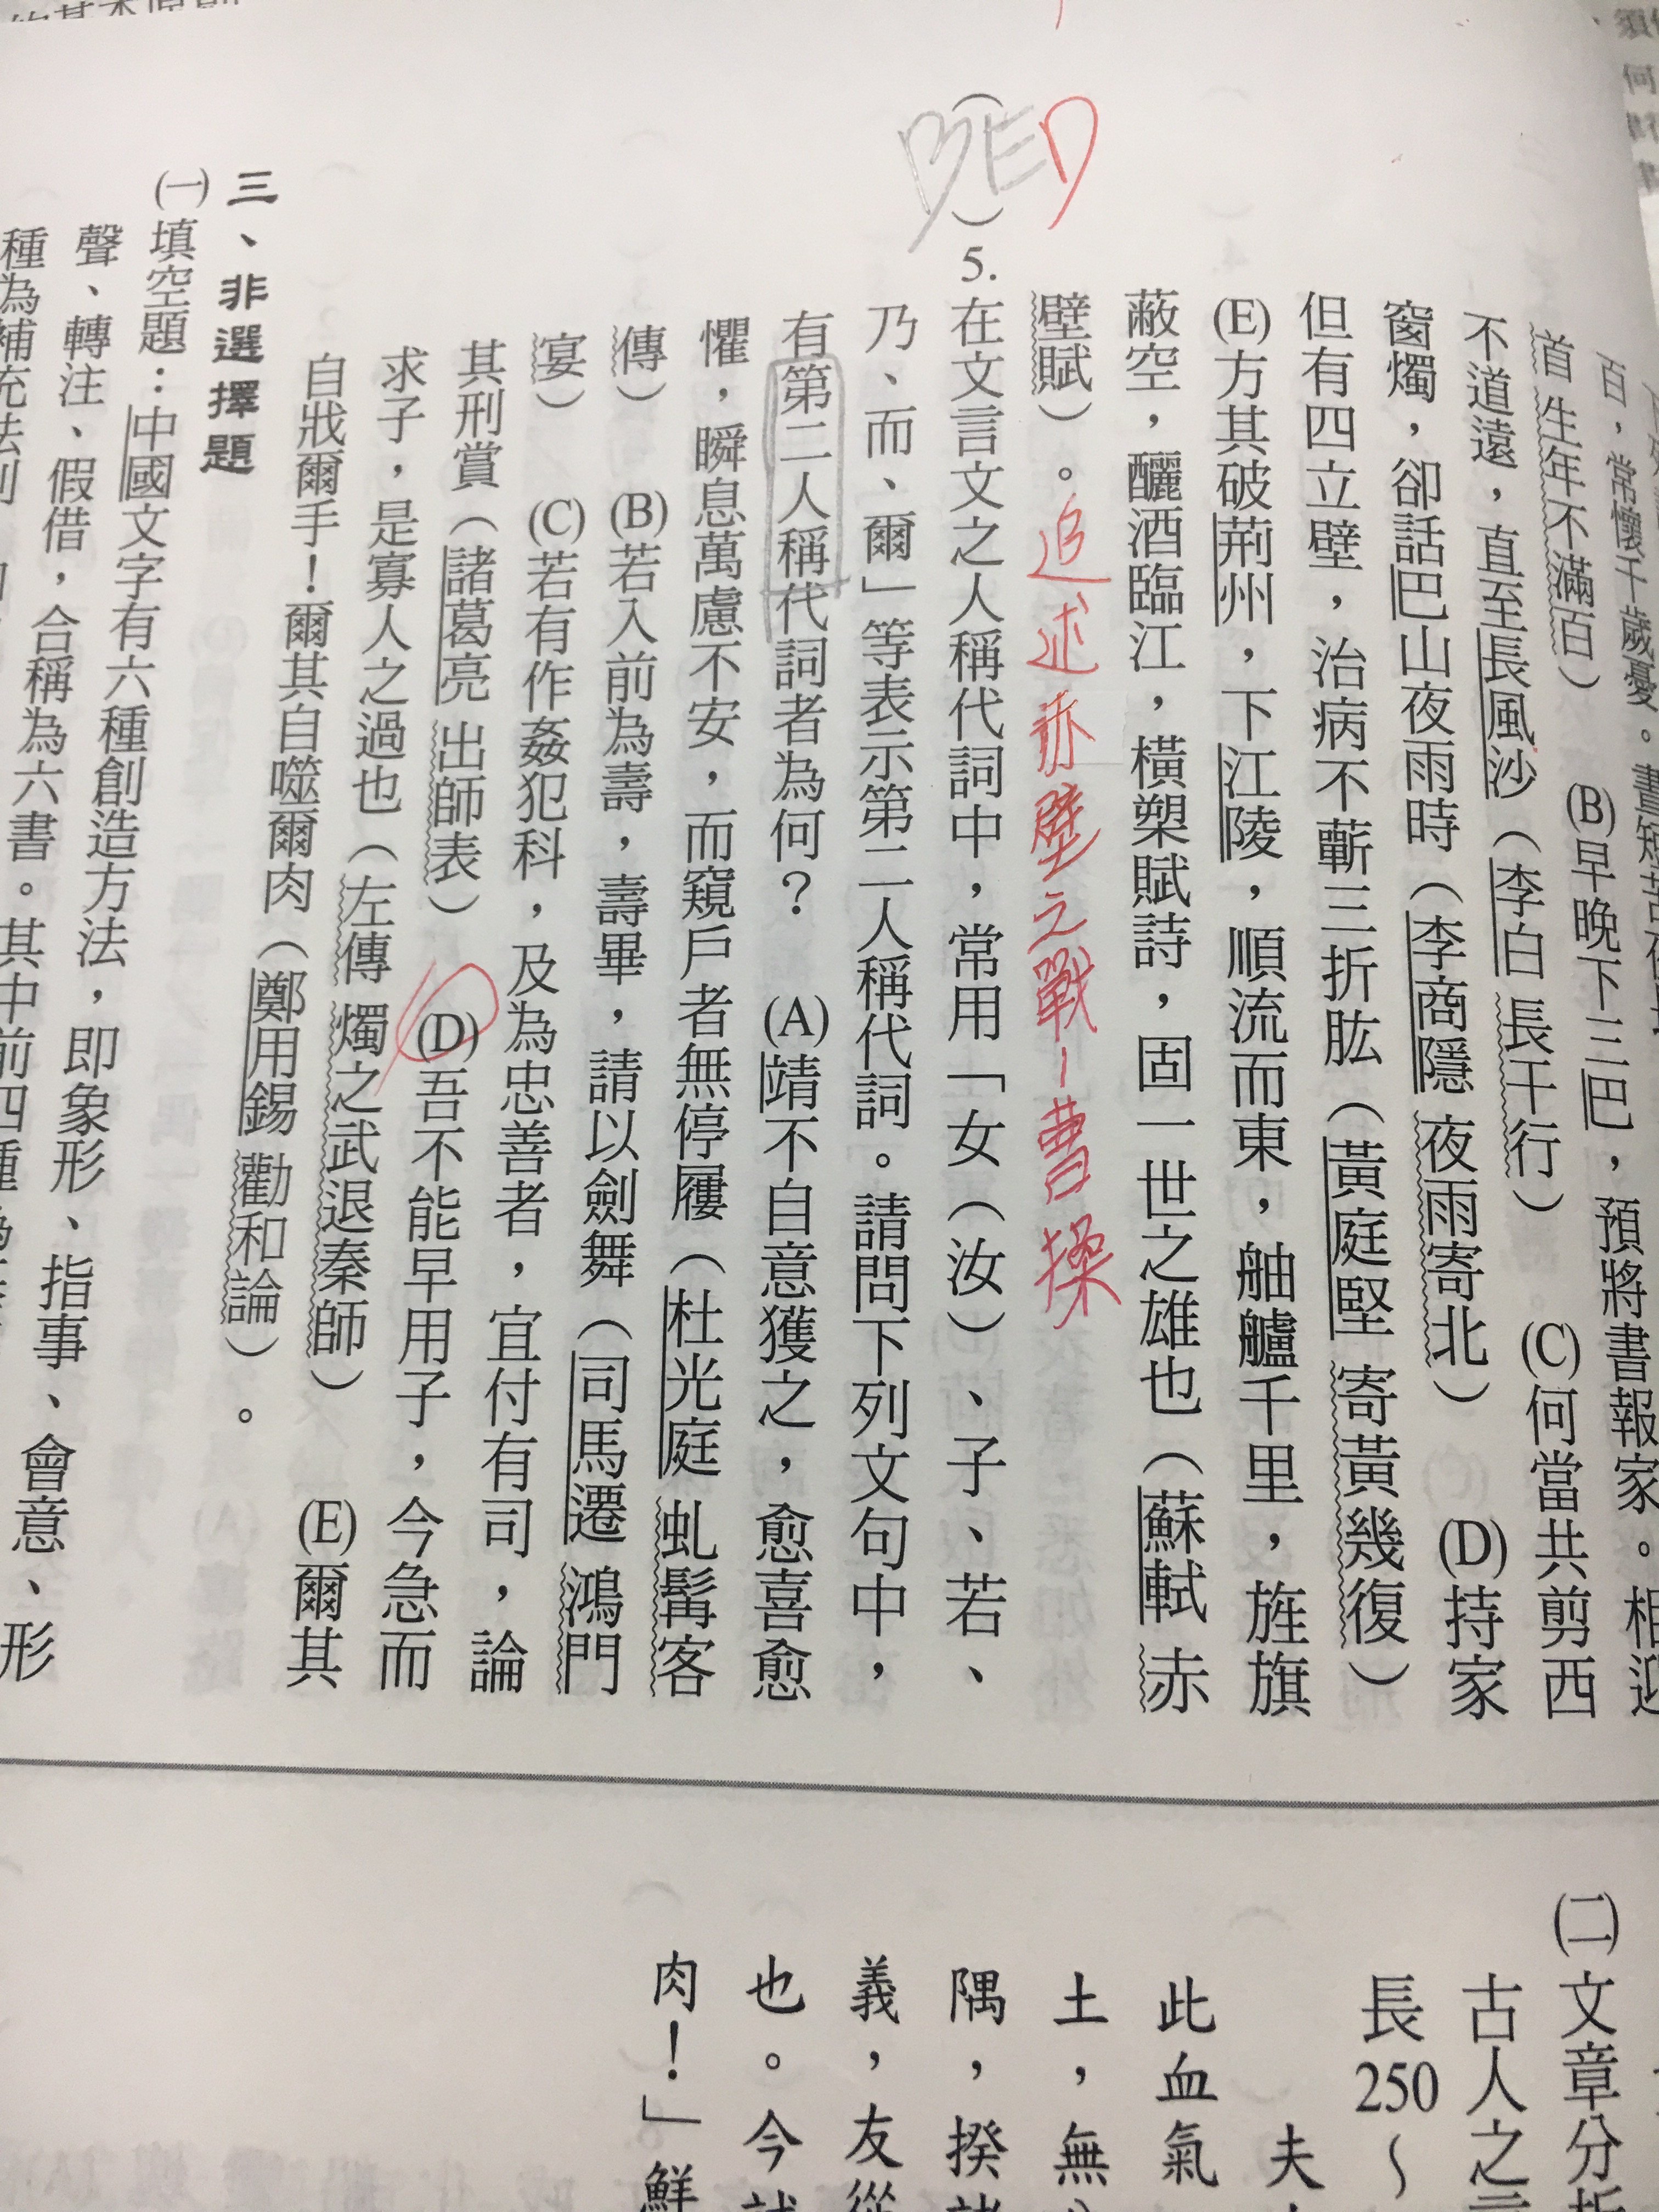 百，常懷千歲憂。晝短苦夜長
首 生年不滿百） (B)早晚下三巴，預將書報家。相迎
不道遠，直至長風沙（李白 長干行） (C)何當共剪西
窗燭，卻話巴山夜雨時（李商隱 夜雨寄北） (D)持家
但有四立壁，治病不蘄三折肱（黃庭堅 寄黃幾復）
(E)方其破荊州，下江陵，順流而東，舳艫千里，旌旗
蔽空，釃酒臨江，橫槊賦詩，固一世之雄也（蘇軾 赤
壁賦）。追述赤壁之戰－曹操
（BED）5.在文言文之人稱代詞中，常用「女（汝）、子、若、
乃、而、爾」等表示第二人稱代詞。請問下列文句中，
有第二人稱代詞者為何？ (A)靖不自意獲之，愈喜愈
懼，瞬息萬慮不安，而窺戶者無停屨（杜光庭 虬髯客
傳） (B)若入前為壽，壽畢，請以劍舞（司馬遷 鴻門
宴） (C)若有作姦犯科，及為忠善者，宜付有司，論
其刑賞（諸葛亮 出師表） (D)吾不能早用子，今急而
求子，是寡人之過也（左傳 燭之武退秦師） (E)爾其
自戕爾手！爾其自噬爾肉（鄭用錫 勸和論）。
三、非選擇題
㈠填空題：中國文字有六種創造方法，即象形、指事、會意、形
聲、轉注、假借，合稱為六書。其中前四種為
種為補充法則
㈡文章分
古人之
長250～
夫
此血氣
土，無
隅，揆
義，友從
也。今
肉！」鮮